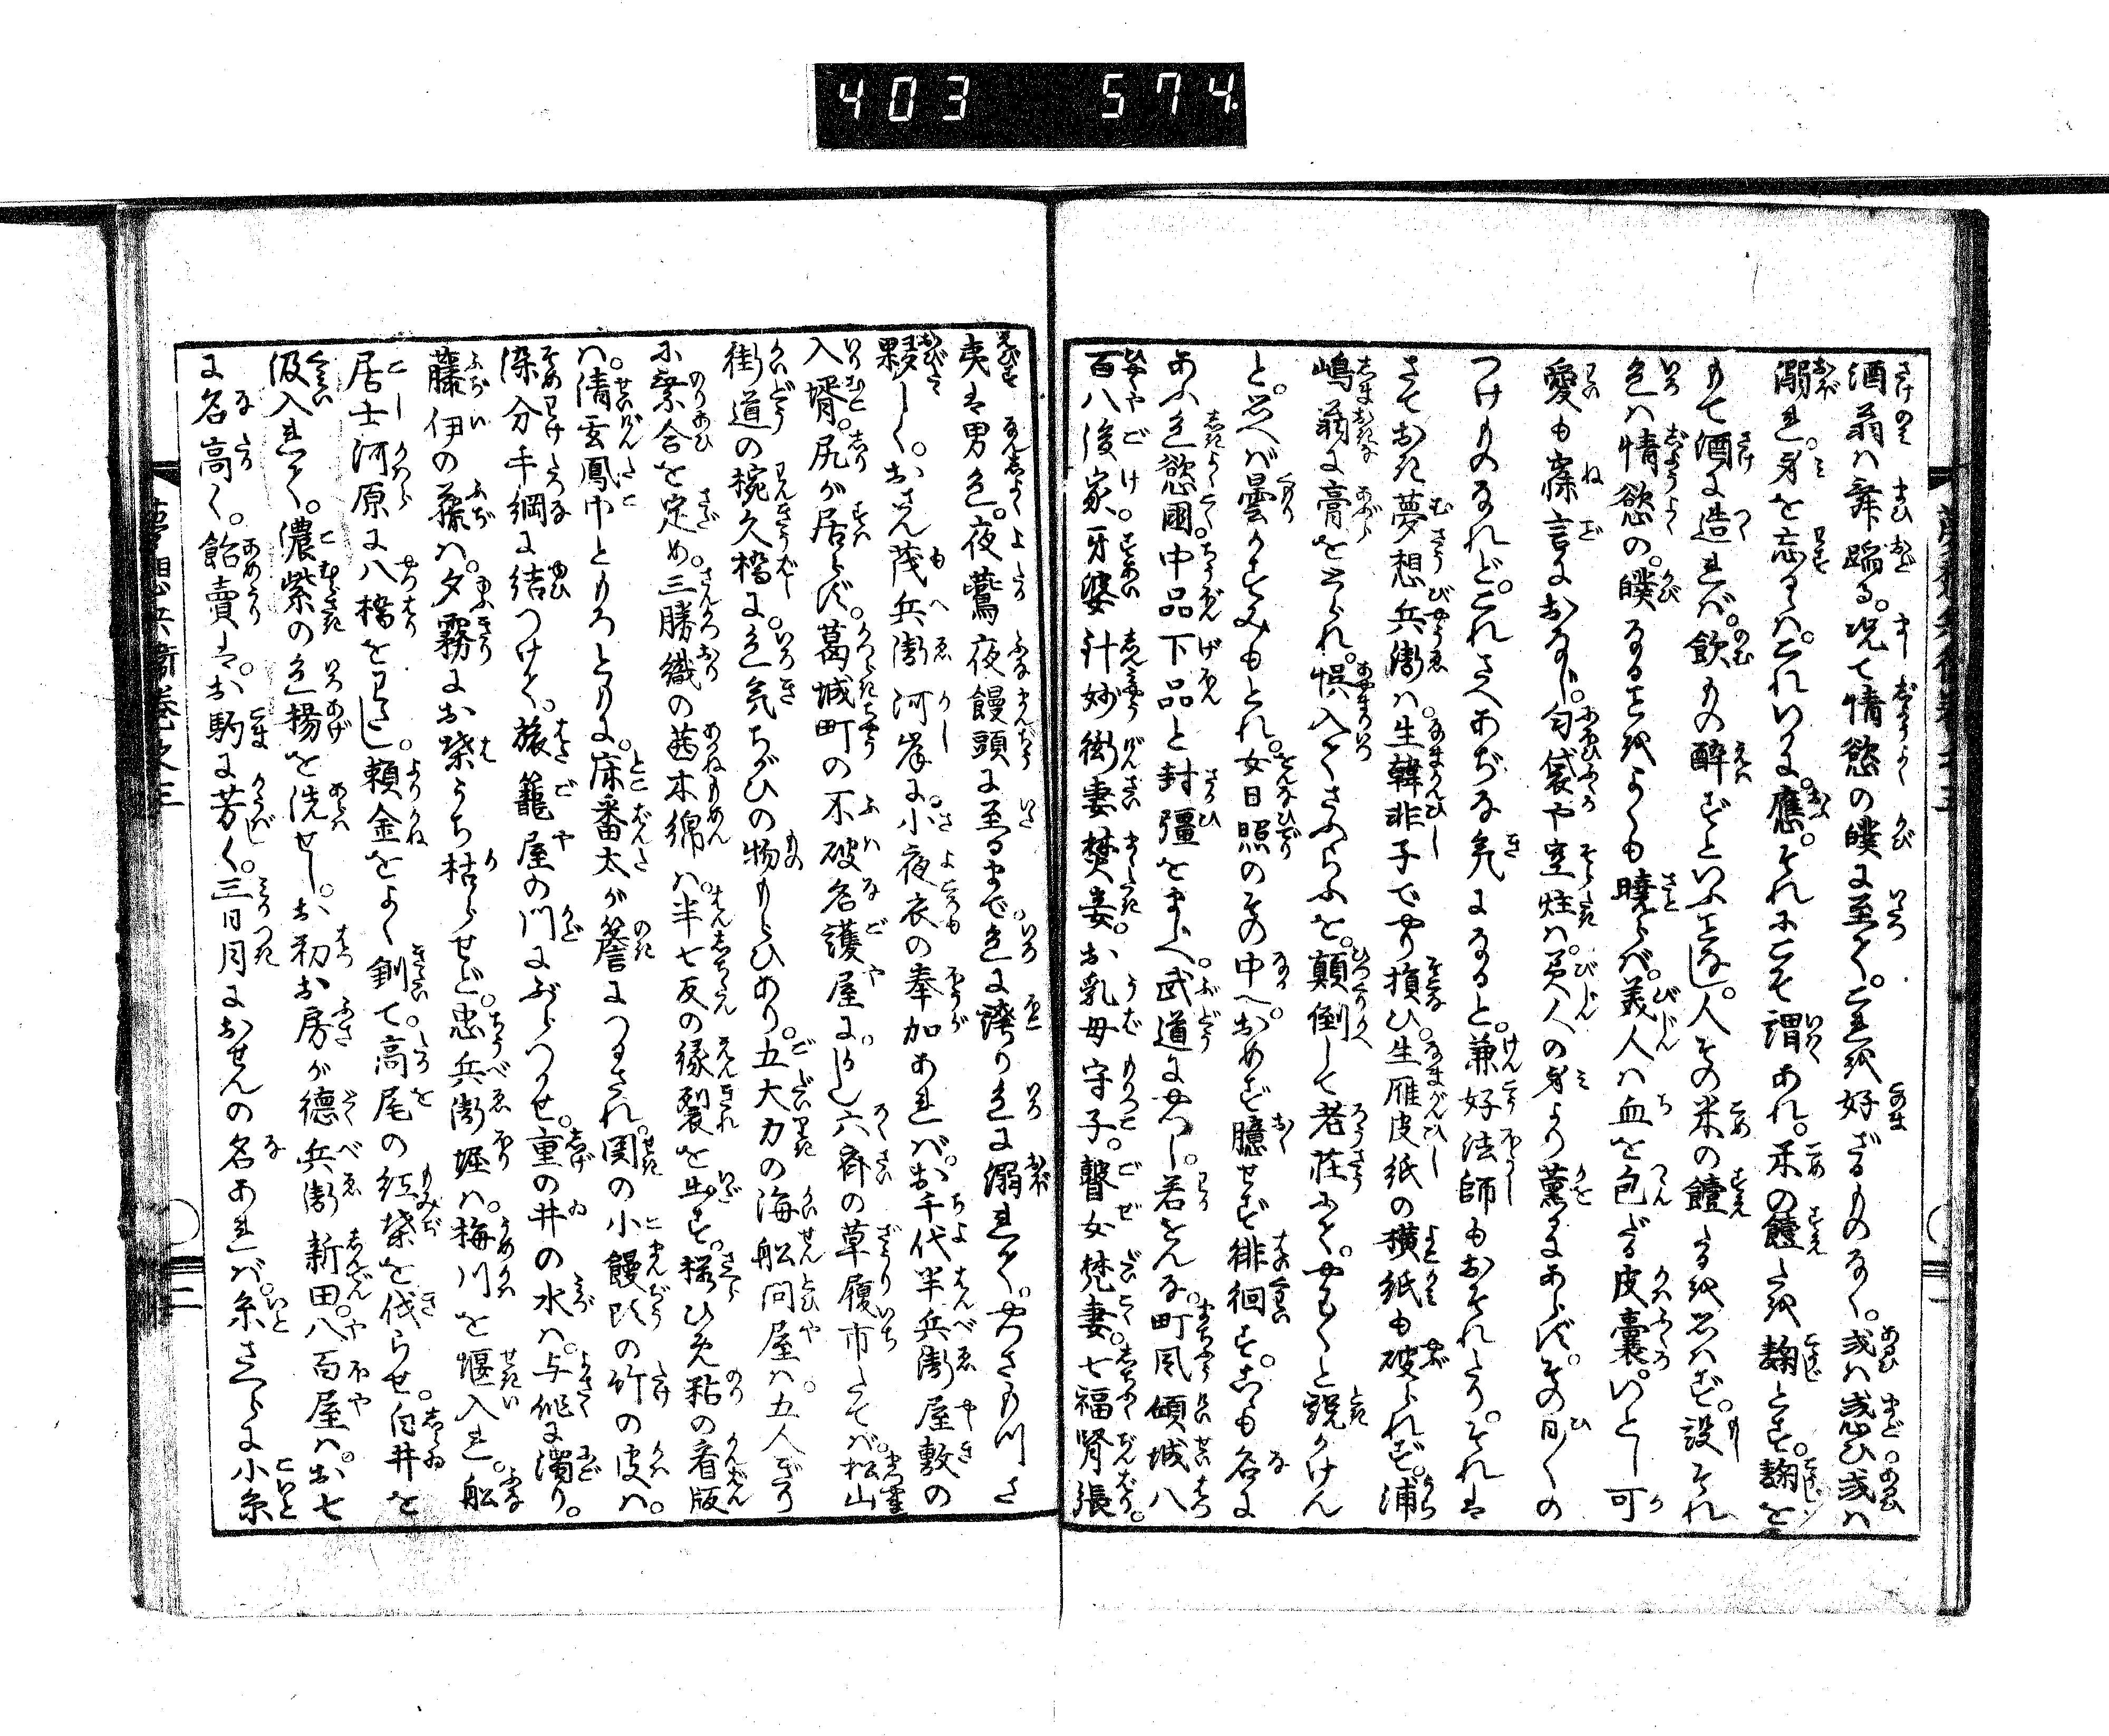 403 574
酒翁は舞踊る。况て情慾の醭に至ては。これを好ざるものなく。或は惑ひ或は
溺れ。身を忘るゝは。これいかに。應。それにこそ謂あれ。米の饐たを麹とす。麹を
もて酒に造れば。飲もの醉ずといふことなし。人その米の饐たるを思はず。設それ
色は情慾の。醭なることをよくも曉らば。美人は血を包だる皮嚢。いとし可
愛も寐言におなじ。匂袋や空炷は。美人の身より薫るにあらず。その日〳〵の
つけものなれど。これさへあぢな気になると。兼好法師もおそれたり。それは
さておき夢想兵衛は。生韓非子でやり損ひ。生雁皮紙の横紙も破られず。浦
嶋翁に膏をとられ。悞入てさふらふを。顛倒して老荘にて。やす〳〵と説かけん
と。思へば曇るかすみもとれ。女日照のその中へ。おめず臆せず徘徊す。しかも名に
あふ色慾國。中品下品と封彊をまじへ。武道にやつし。若とんな。町風傾城八
百八後家。牙婆針妙衒妻焚妾。お乳母守子。瞽女梵妻。七福腎張
夷は男色。夜鷹夜饅頭に至るまで。色に誇り色に溺れて。やつさもつさ
夥しく。おさん茂兵衛河岸に。小夜衣の奉加あれば。お千代半兵衛屋敷の
入壻。尻が居らず。葛城町の不破名護屋に。六齋の草履市たてば。松山
街道の椀久橋に。色気ちがひの物もらひあり。五大力の海舩問屋は。五人ぎり
に乗合を定め。三勝織の茜木綿は。半七反の縁裂を出す。糊ひ免粘の看版
は。清玄鳳巾ともろともに。床番太が簷につるされ。関の小饅頭の竹の皮は。
染分手綱に結つけて。旅籠屋の門にぶらつかせ。重の井の水は。与作に濁り。
藤伊の藤は。夕霧にお葉うち枯らせど。忠兵衛堀は。梅川を堰入れ。舩
居士河原に八橋をわたし。頼金をよく釧て。高尾の紅葉を伐らせ。白井を
汲入れて。濃紫の色揚を洗せし。お初お房が徳兵衛新田。八百屋は。お七
に名高く。飴賣は。お駒に芳く。三日月におせんの名あれば。糸さくらに小糸
夢想兵衛巻之三
二